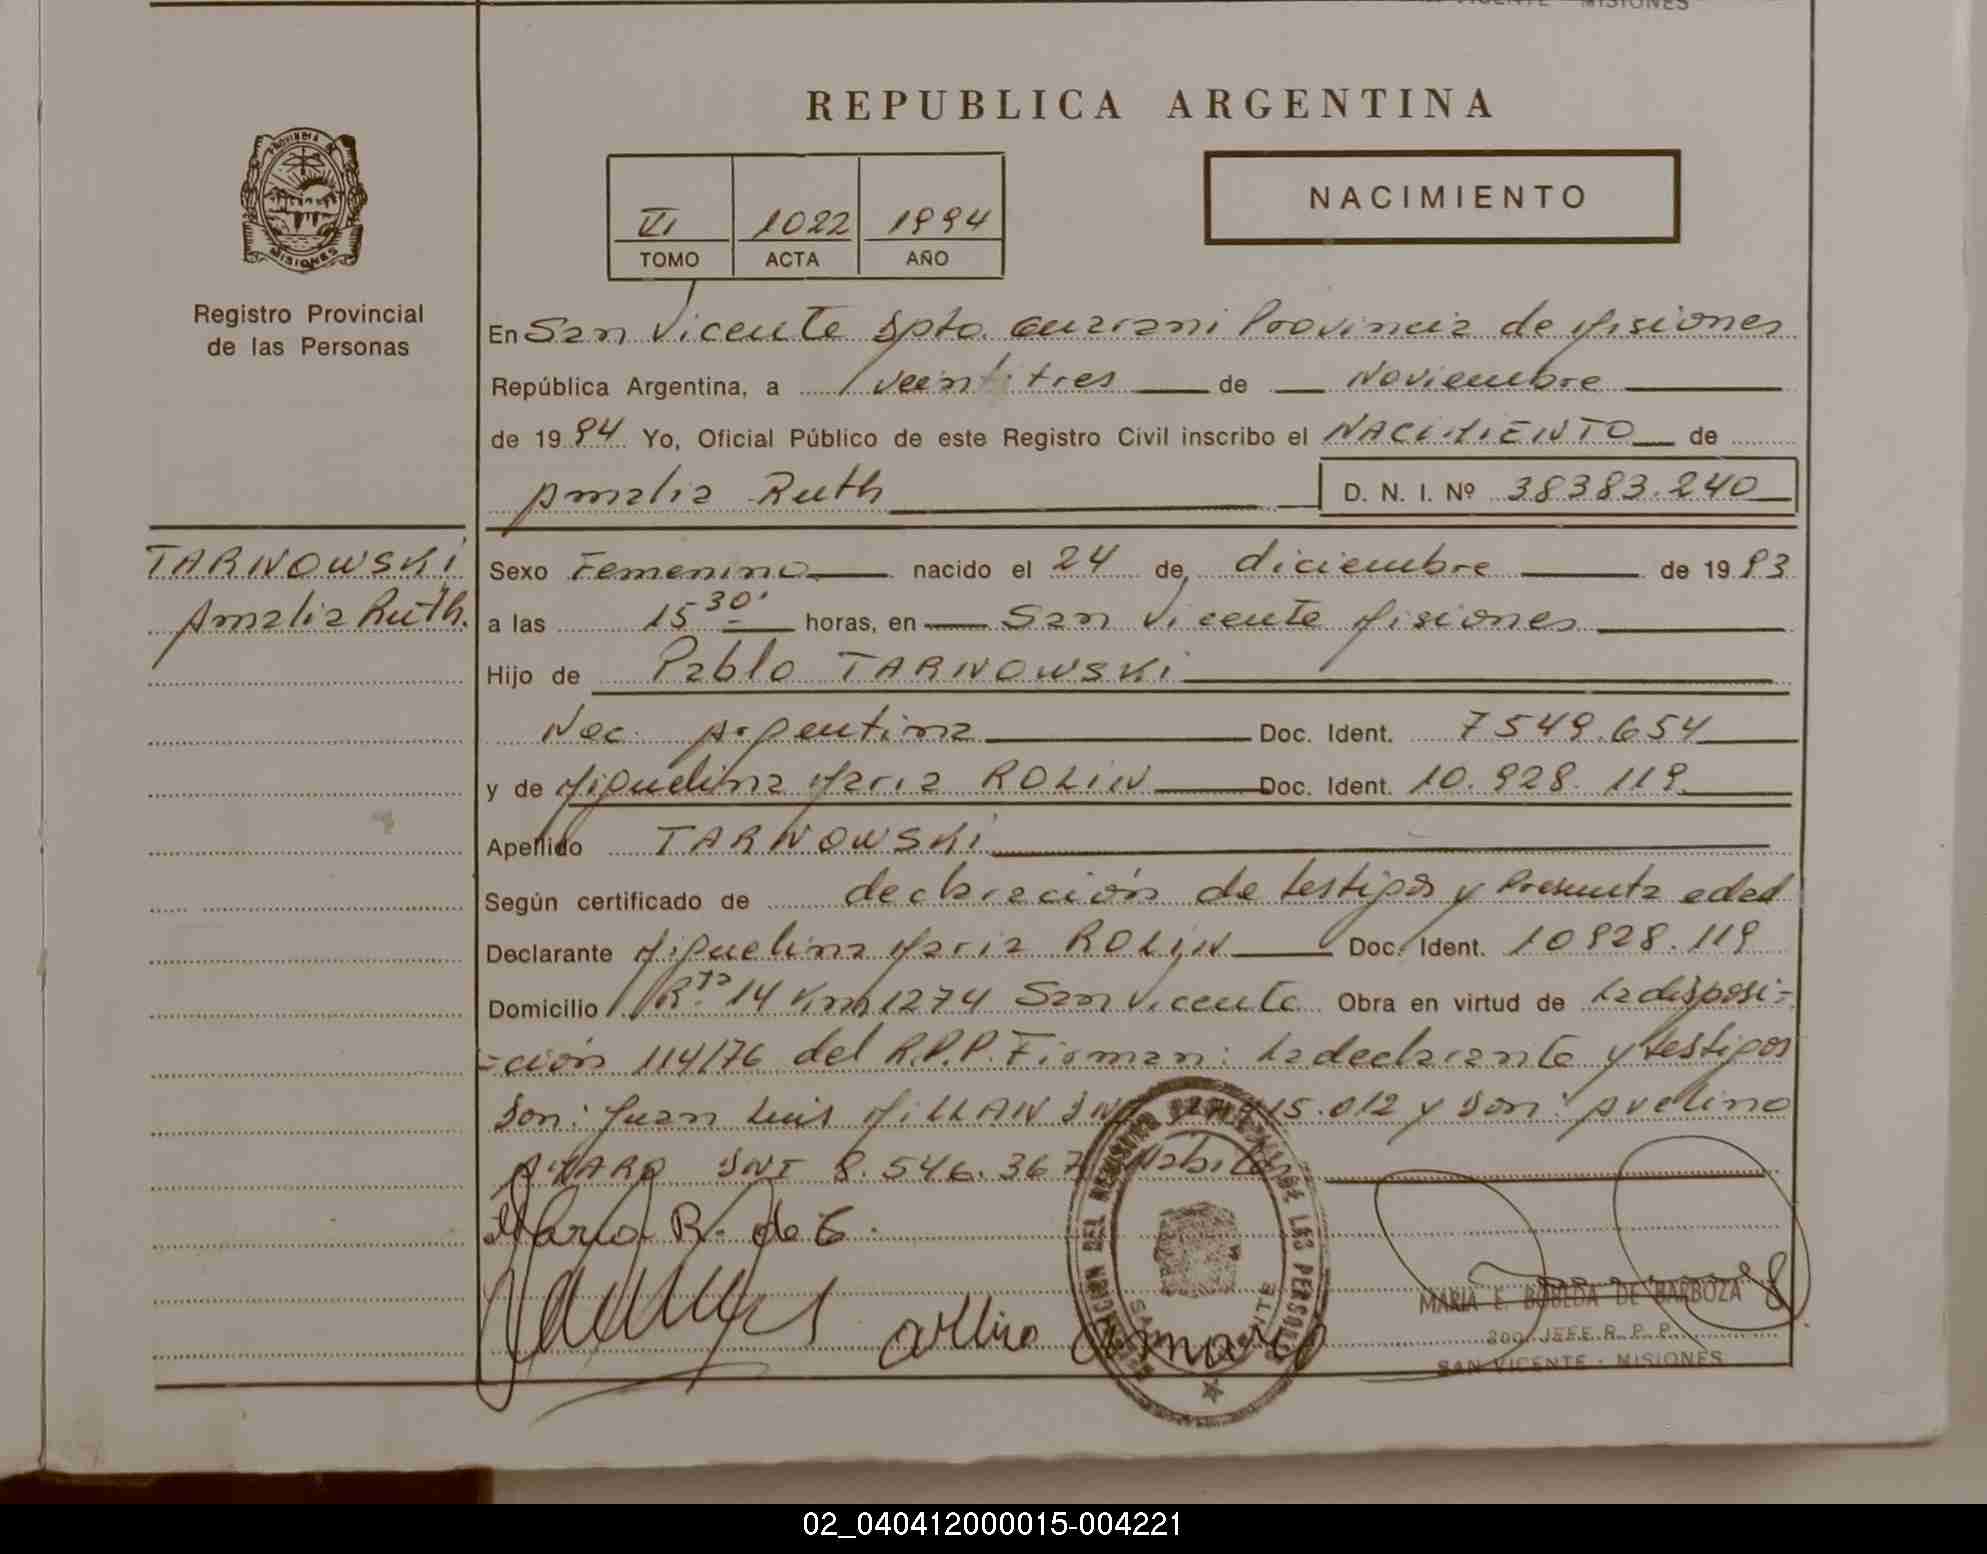 MISIONES
REPUBLICA ARGENTINA
PROVINCIA DE
MISIONES
Registro Provincial
de las Personas
VI 1022 1994
TOMO ACTA AÑO
NACIMIENTO
En San Vicente Dpto. Guarani Provincia de Misiones
República Argentina, a veintitres de Noviembre
de 1994 Yo, Oficial Público de este Registro Civil inscribo el NACIMIENTO de
Amalia Ruth D. N. I. Nº 38383.240
TARNOWSKI
Amalia Ruth.
Sexo Femenino nacido el 24 de diciembre de 1993
a las 15 30' horas, en San Vicente Misiones
Hijo de Pablo TARNOWSKI
Nac. Argentina Doc. Ident. 7549.654
y de Miguelina Maria ROLIN Doc. Ident. 10.928.119
Apellido TARNOWSKI
Según certificado de declaración de testigos y Presunta edad
Declarante Miguelina Maria ROLIN Doc. Ident. 10928.119
Domicilio Rta. 14 Km 1274 San Vicente Obra en virtud de la disposi-
-ción 114/76 del R.P.P. Firman: la declarante y testigos
Don: Juan Luis MILLAN DNI 15.012 y Don: Avelino
AMARO DNI 8.546.367 Habiles
Maria R. de
Amaro
DEL REGISTRO PROVINCIAL DE LAS PERSONAS
SAN VICENTE
MARIA E. BOBEDA DE BARBOZA
JEFE R. P. P.
SAN VICENTE - MISIONES
02_040412000015-004221